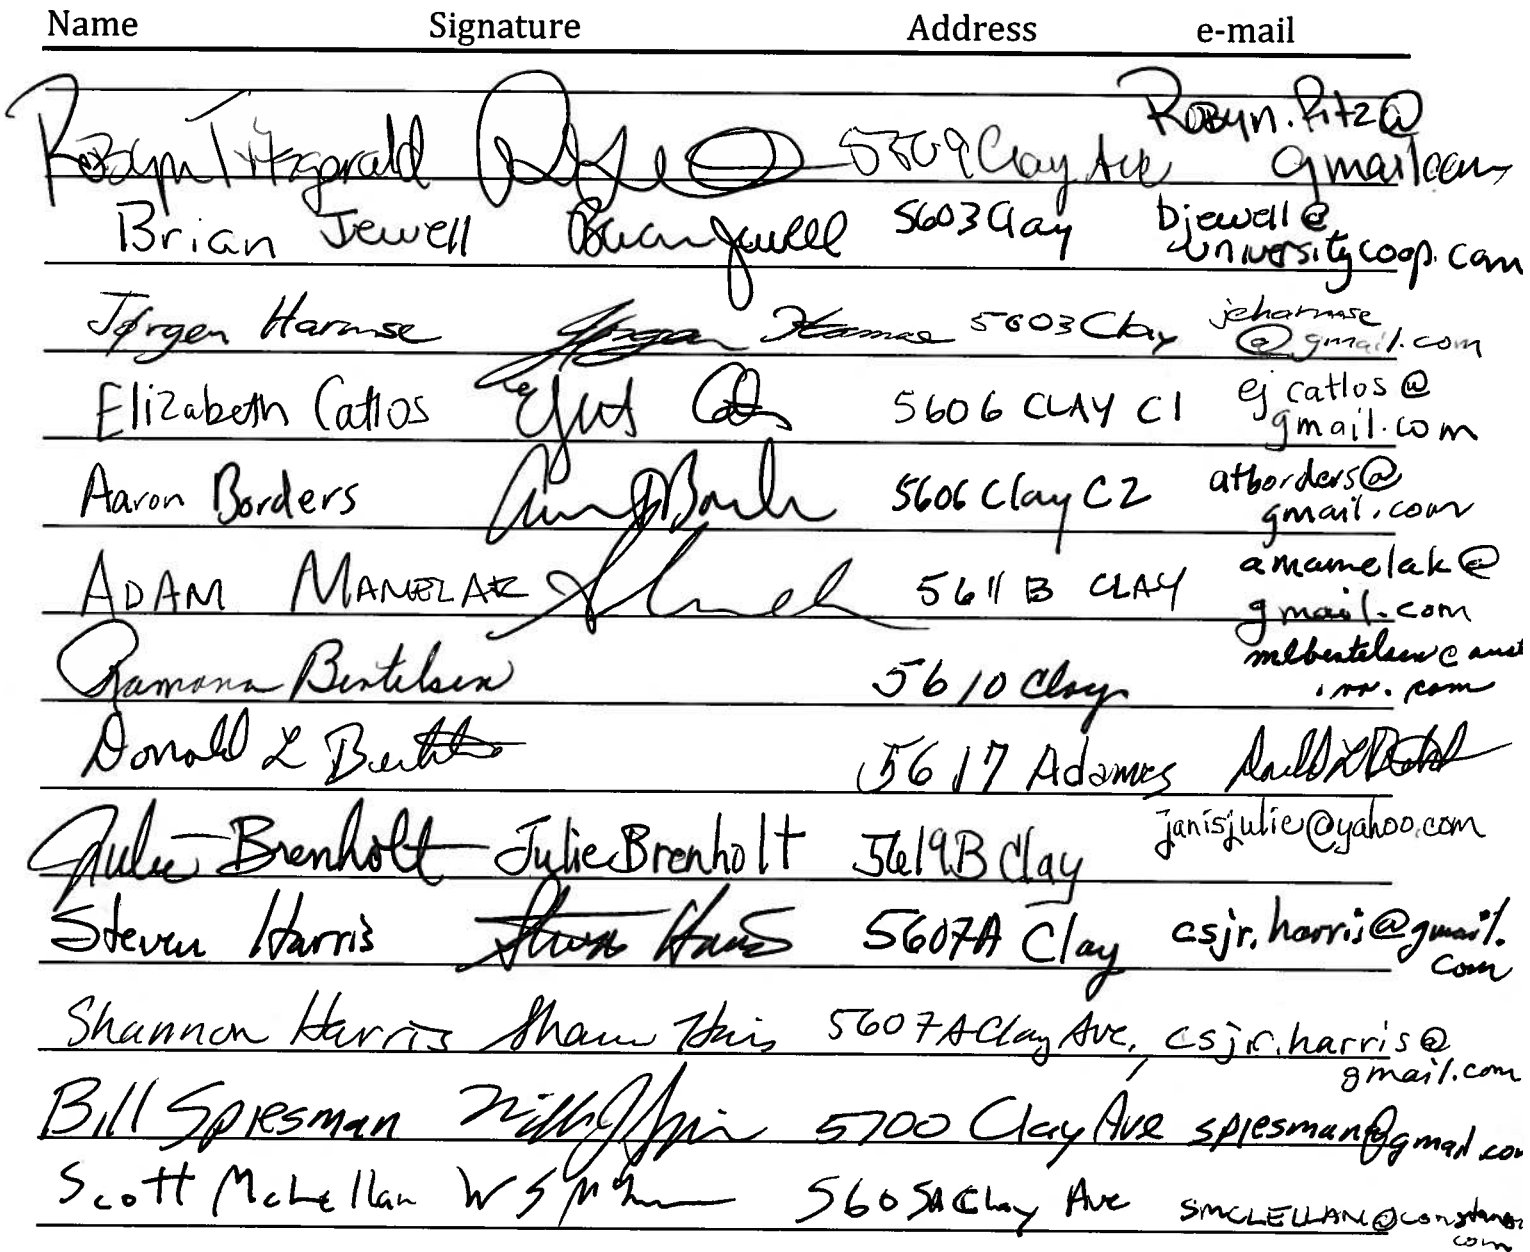 Name Signature Address e-mail
Robyn Fitzgerald 5509 Clay Ave Robyn.Fitz@
gmail.com
Brian Jewell Brian Jewell 5603 Clay bjewell@
universitycoop.com
Jørgen Harmse Jørgen Harmse 5603 Clay jeharmse
@gmail.com
Elizabeth Catlos 5606 CLAY C1 ejcatlos@
gmail.com
Aaron Borders 5606 Clay C2 atborders@
gmail.com
ADAM MAMELAK 5611 B CLAY amamelak@
gmail.com
Ramona Bertelsen 5610 Clay mlbertelsen@aust
.rr.com
Donald L 5617 Adams
Julie Brenholt Julie Brenholt 5619B Clay janisjulie@yahoo.com
Steven Harris Steven Harris 5607A Clay csjr.harris@gmail.
com
Shannon Harris 5607A Clay Ave, csjr.harris@
gmail.com
Bill Spiesman 5700 Clay Ave spiesman@gmail.com
Scott McLellan 5605A Clay Ave
com